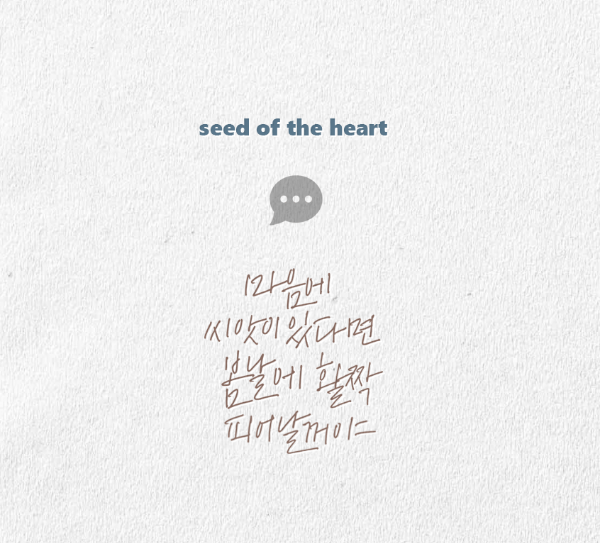 seed of the heart
마음에
씨앗이 있다면
봄날에 활짝
피어날꺼이ㄷ